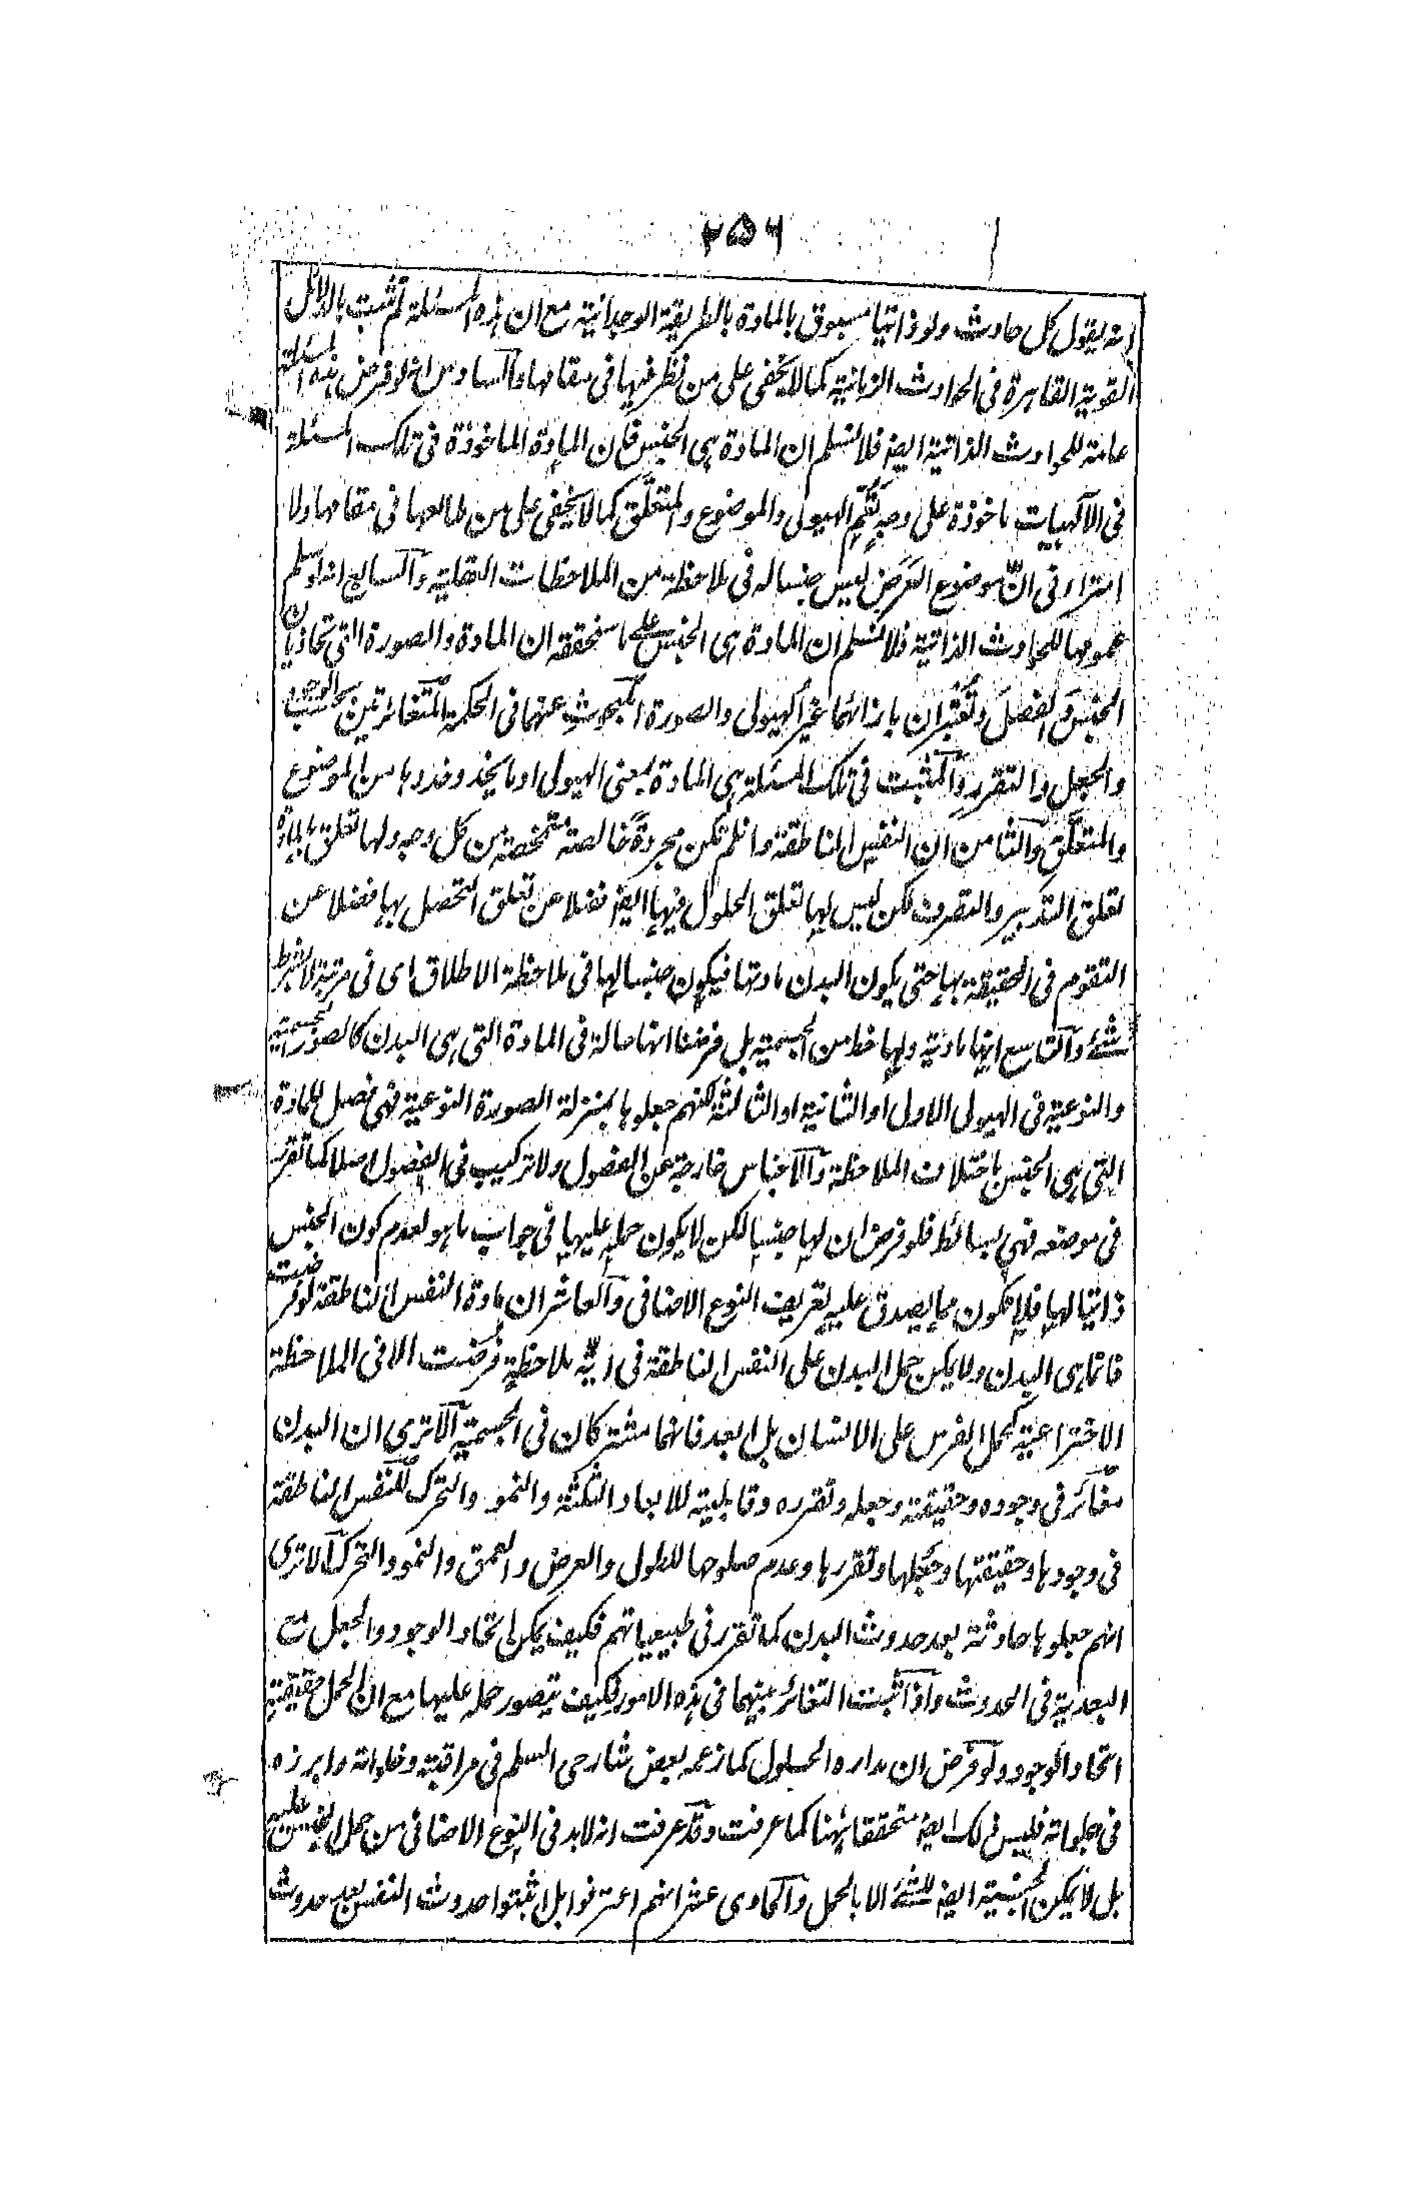 ۲۵۶
انه يقول كل حادث ولو ذاتيا مسبوق بالمادة بالطريقة الوجدانية مع ان هذه المسئلة لم تثبت بالدلائل
القوية القاهرة فى الحوادث الزمانية كما لا يخفى على من نظر فيها فى مقامها والسادس انه لو فرض هذه المسئلة
عامة للحوادث الذاتية ايضا فلا نسلم ان المادة هى الجنس فان المادة الماخوذة فى تلك المسئلة
فى الآلهيات ماخوذة على وجه يعم الهيولى والموضوع والمتعلَّق كما لا يخفى على من طالعها فى مقامها ولا
امتراء فى انّ موضوع العَرَض ليس جنسا له فى ملاحظة من الملاحظات العقلية والسابع انه لو سلم
عمومها للحوادث الذاتية فلا نسلم ان المادة هى الجنس على ما سنحققه ان المادة والصورة التى تحاذيان
الجنس والفصل وتعتبران بازائهما غير الهيولى والصورة المبحوث عنهما فى الحكمة المتغائرتين بحسب الوجود
والجعل والتقرر والمثبت فى تلك المسئلة هى المادة بمعنى الهيولى او ما يحذو حذوها من الموضوع
والمتعلَّق والثامن ان النفس الناطقة وانلم تكن مجردةً خالصة متمحضة من كل وجه ولها تعلق بالمادة
تعلق التدبير والتصرف لكن ليس لها تعلق الحلول فيها ايضا فضلا عن تعلق التحصل بها فضلا عن
التقوم فى الحقيقة بها حتى يكون البدن مادتها فيكون جنسا لها فى ملاحظة الاطلاق اى فى مرتبة لا بشرط
شئ والتاسع انها مادية ولها حظ من الجسمية بل فرضنا انها حالة فى المادة التى هى البدن كالصورة الجسمية
والنوعية فى الهيولى الاولى او الثانية او الثالثة لكنهم جعلوها بمنزلة الصورة النوعية فهى فصل للمادة
التى هى الجنس باختلاف الملاحظة والاجناس خارجة عن الفصول ولا تركيب فى الفصول اصلا كما تقرر
فى موضعه فهى بسائط فلو فرض ان لها جنسا لكن لا يكون حمله عليها فى جواب ما هو لعدم كون الجنس
ذاتيا لها فلا تكون مما يصدق عليه تعريف النوع الاضافى والعاشر ان مادة النفس الناطقة لو فرضت
فانما هى البدن ولا يمكن حمل البدن على النفس الناطقة فى ايّة ملاحظةٍ فُرضت الا فى الملاحظة
الاختراعية كحمل الفرس على الانسان بل ابعد فانهما مشتركان فى الجسمية الا ترى ان البدن
مغائر فى وجوده وحقيقته وجعله وتقرره وقابليته للابعاد الثلثة والنمو والتحرك للنفس الناطقة
فى وجودها وحقيقتها وجعلها وتقررها وعدم صلوحها للطول والعرض والعمق والنمو والتحرك الا ترى
انهم جعلوها حادثة بعد حدوث البدن كما تقرر فى طبيعياتهم فكيف يمكن اتحاد الوجود والجعل مع
البعدية فى الحدوث واذا ثبت التغائر بينهما فى هذه الامور فكيف يتصور حمله عليها مع ان الحمل حقيقته
اتحاد الوجود ولو فرض ان مداره الحلول كما زعمه بعض شارحى السلم فى مراقبته وخلواته وابرزه
فى جلواته فليس ذلك ايضا متحققا ههنا كما عرفت وقد عرفت انه لابد فى النوع الاضافى من حمل الجنس عليه
بل لا يمكن الجنسية ايضا للشئ الا بالحمل والحادى عشر انهم اعترفوا بل اثبتوا حدوث النفس بعد حدوث